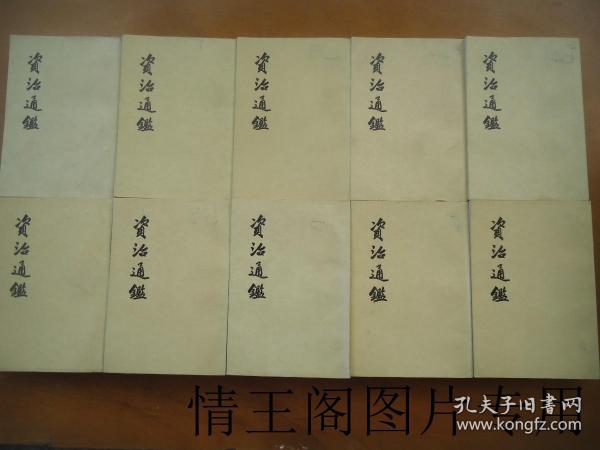 資治通鑑
資治通鑑
資治通鑑
資治通鑑
資治通鑑
資治通鑑
資治通鑑
資治通鑑
資治通鑑
資治通鑑
情王阁图片专用
孔夫子旧書网
www.kongfz.com